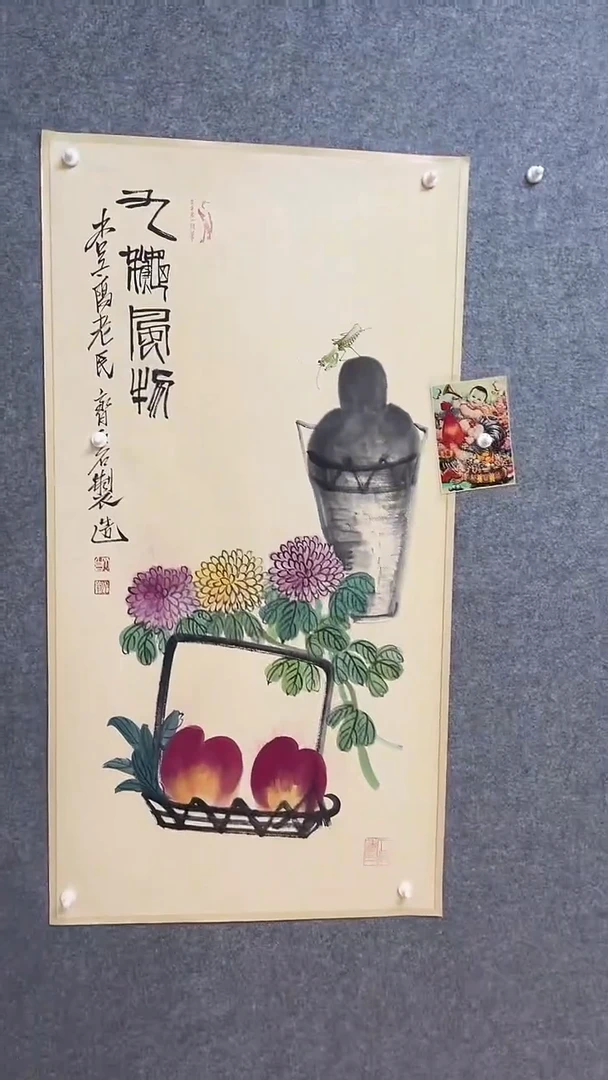 九龝風物
杏子隖老民 齊白石製造